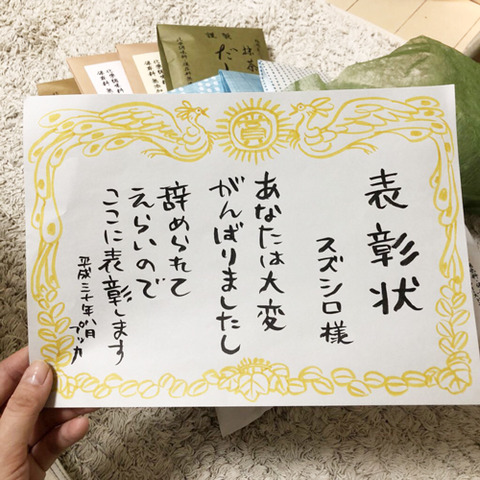 賞
表彰状
スズシロ様
あなたは大変
がんばりましたし
辞められて
えらいので
ここに表彰します
平成三十年八月
謹製
抹茶